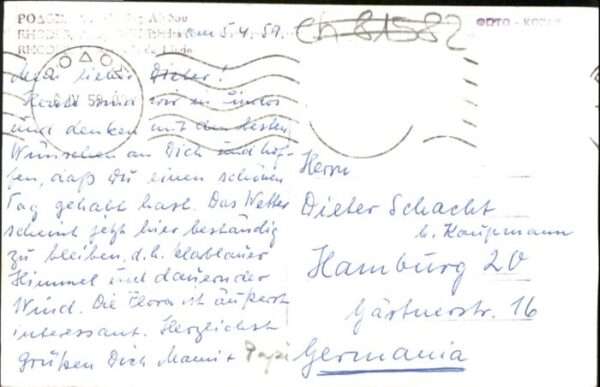 am 5.4.59.
Ch 81582
ΦΩΤΟ - 
Mein lieber Dieter!
Heute sind wir in Lindos
und denken mit den besten
Wünschen an Dich und hof-
fen, daß Du einen schönen
Tag gehabt hast. Das Wetter
scheint jetzt hier beständig
zu bleiben, d.h. blauer
Himmel und dauernder
Wind. Die Flora ist äußerst
interessant. Herzlichst
grüßen Dich Mami + Papi
Herrn
Dieter Schacht
b. Kaupmann
Hamburg 20
Gärtnerstr. 16
Germania